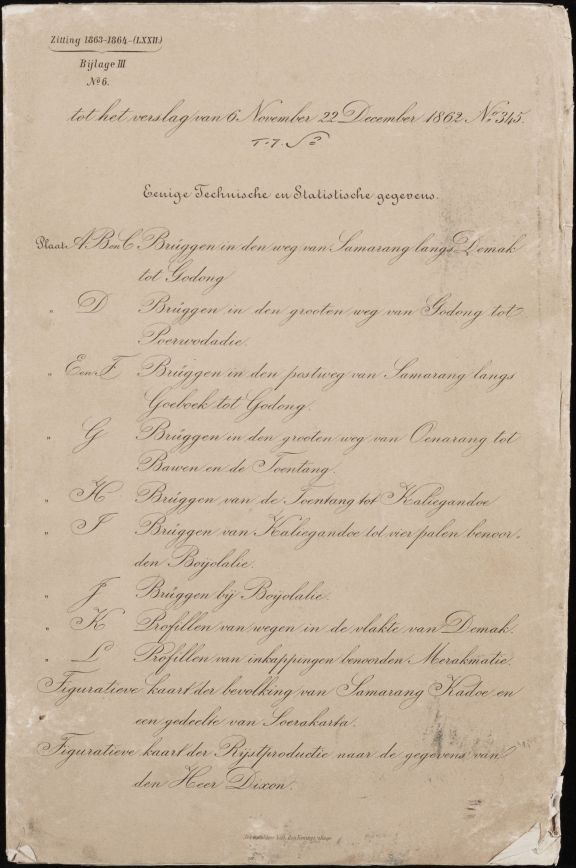 Zitting 1863-1864-(LXXII.)
Bijlage III
No 6.
tot het verslag van 6 November 22 December 1862 No 345.
Eenige Technische en Statistische gegevens.
Plaat A B en C Bruggen in den weg van Samarang langs Demak
tot Godong
" D Bruggen in den grooten weg van Godong tot
Poerwodadie.
" E en F Bruggen in den postweg van Samarang langs
Goeboek tot Godong.
" G Bruggen in den grooten weg van Oenarang tot
Bawen en de Toentang.
" H Bruggen van de Toentang tot Kaliegandoe
" I Bruggen van Kaliegandoe tot vier palen benoor-
den Boijolalie.
" J Bruggen bij Boijolalie.
" K Profillen van wegen in de vlakte van Demak.
" L Profillen van inkappingen benoorden Merakmatie.
Figuratieve kaart der bevolking van Samarang Kadoe en
een gedeelte van Soerakarta.
Figuratieve kaart der Rijstproductie naar de gegevens van
den Heer Dixon.